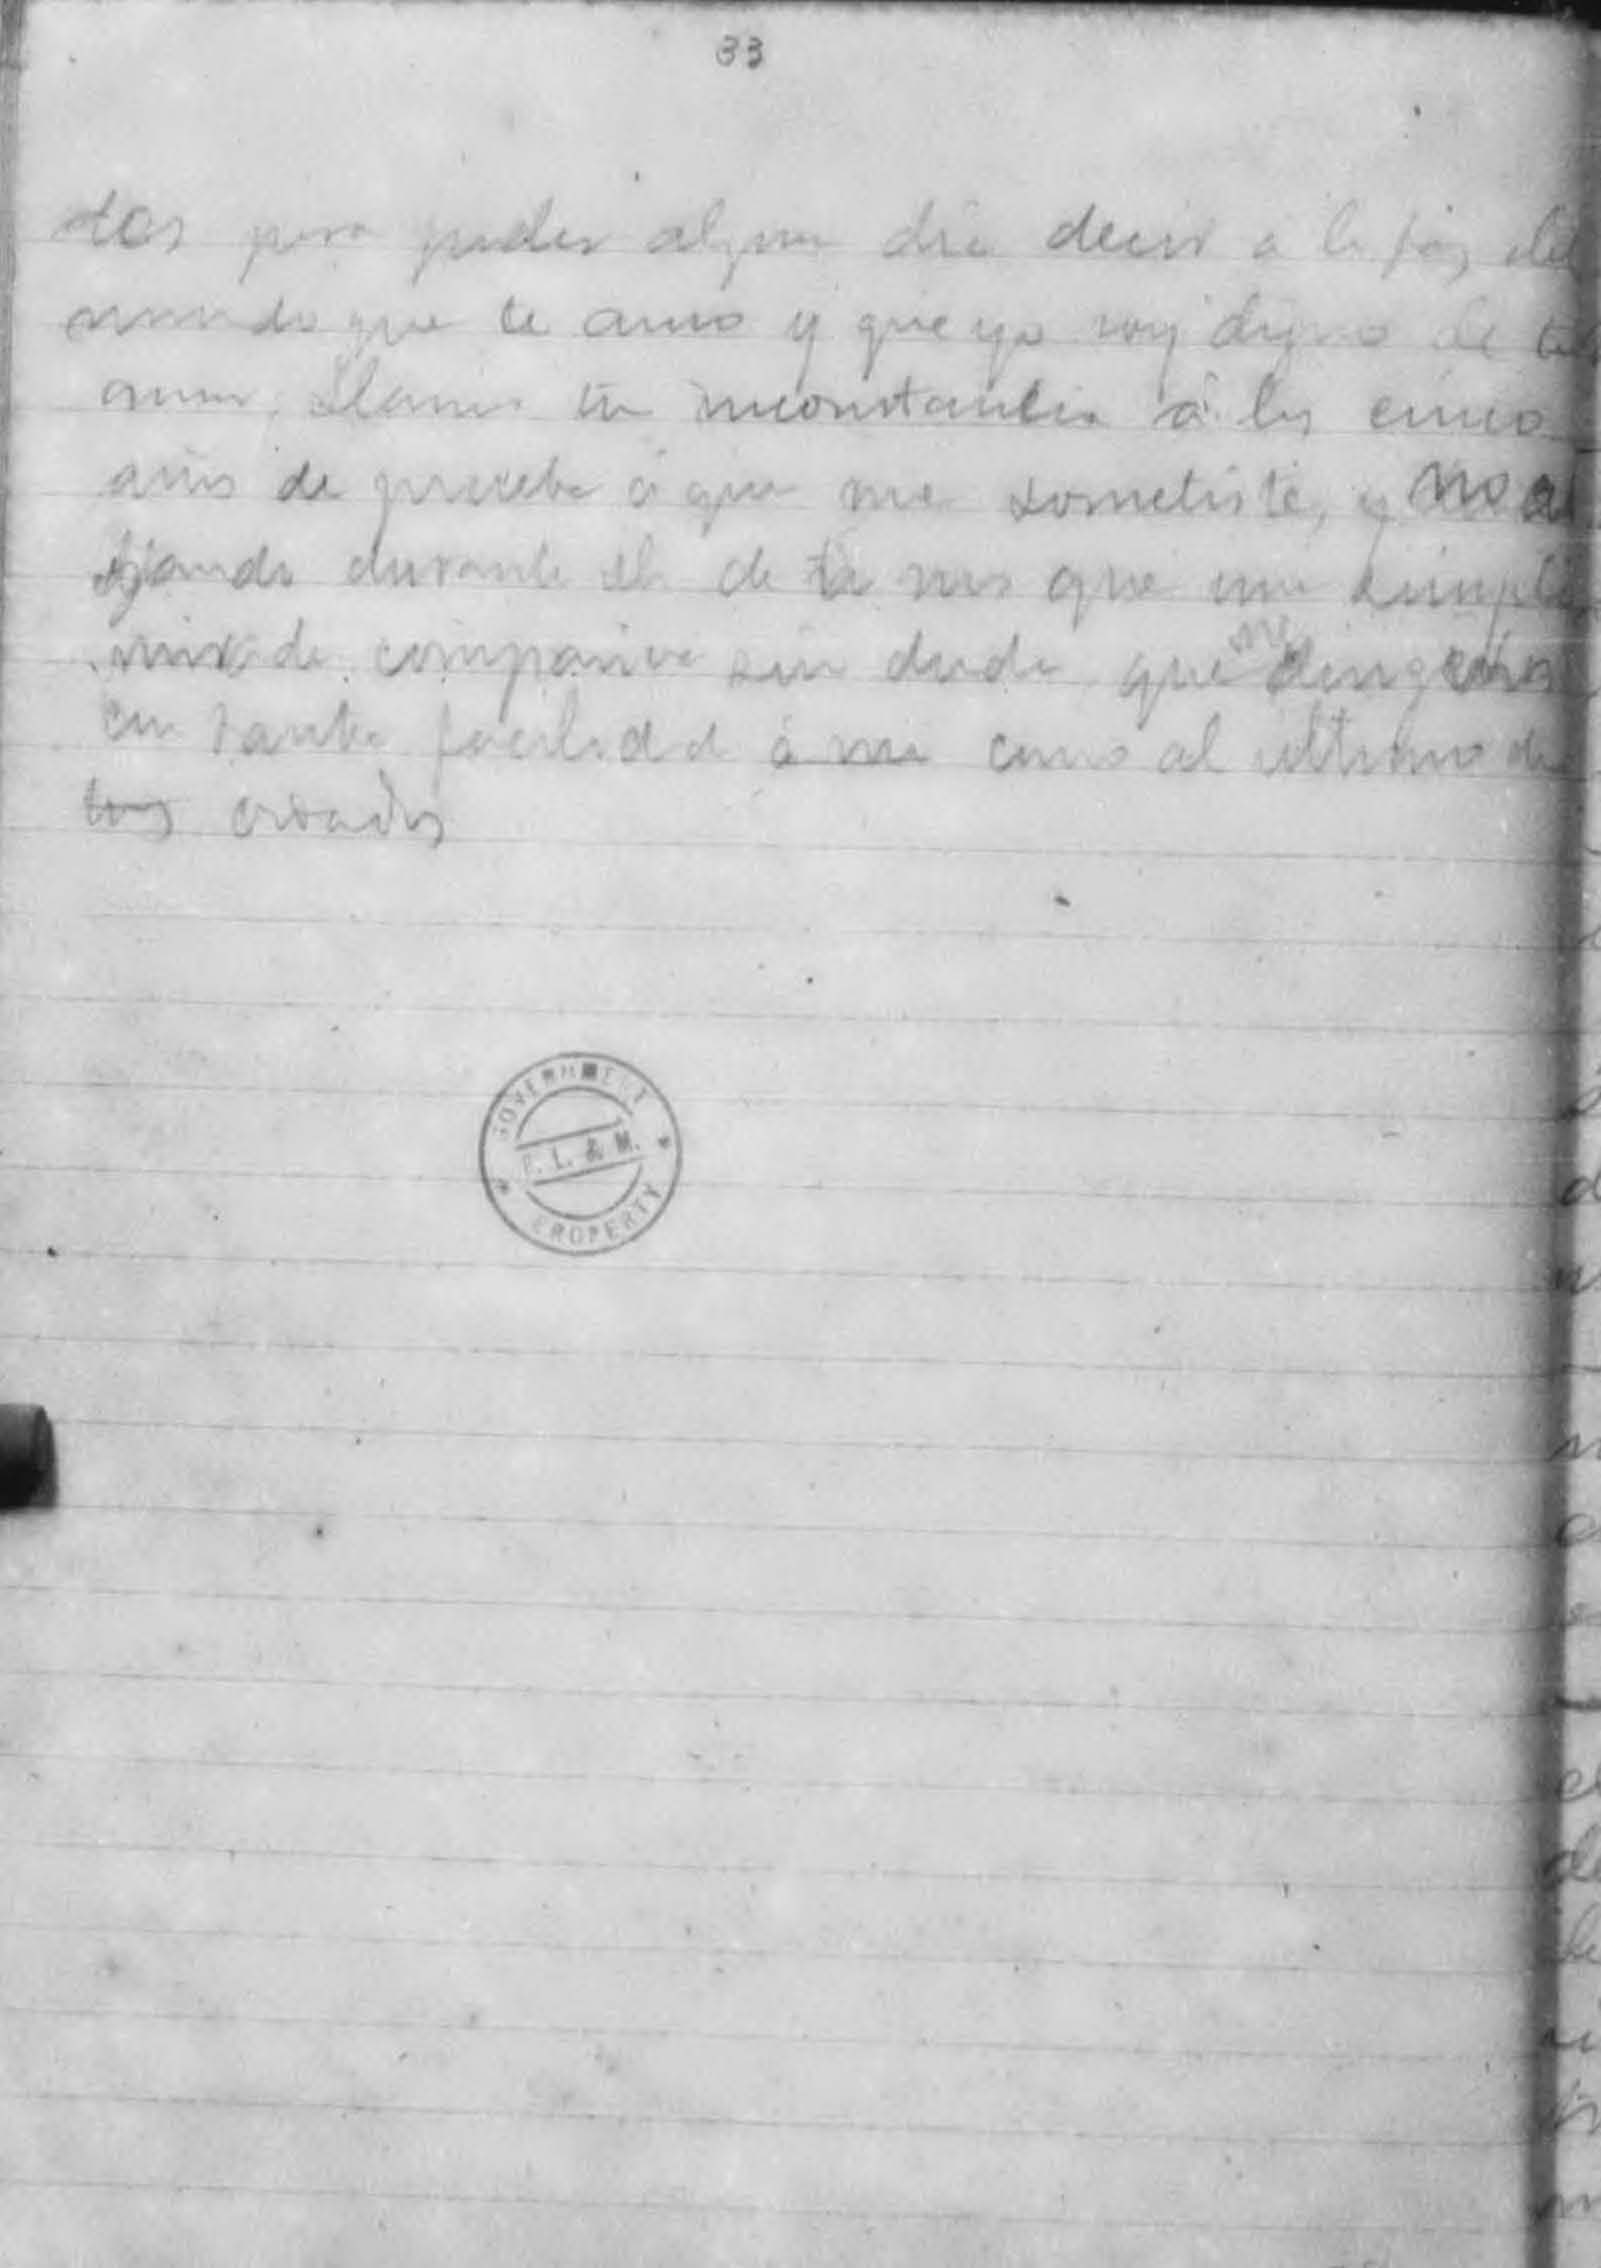 33
tos para poder algun dia decir a la faz del
mundo que te amo y que yo soy digno de tu
amor. Llamas tu inconstancia á los cinco
años de prueba á que me sometiste, y no al
durante el de ti mas que una simple
mirada compasiva sin duda que me dirigias
con tanta facilidad á mi como al ultimo de
tus criados
GOVERNMENT
P. L. & M.
PROPERTY